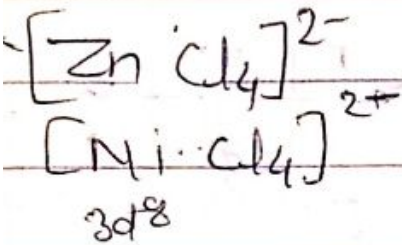 [Zn Cl4]2-
[Ni Cl4]2-
3d8